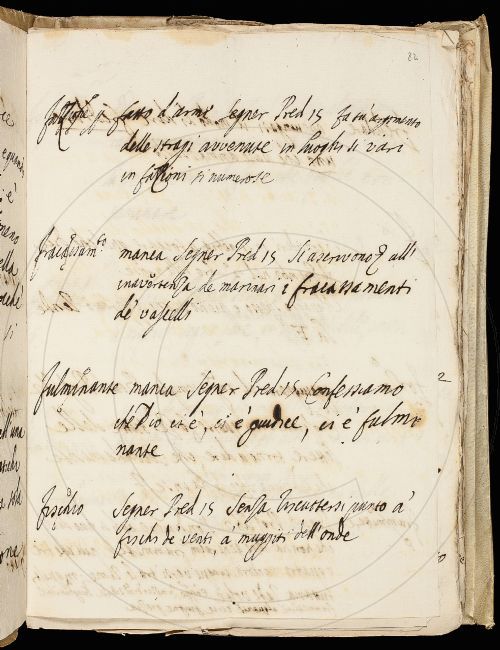 82
fazzione p fatto d'armi Segner Pred 15 fa tu argomento
delle stragi avvenute in luoghi si vari
in fazioni si numerose
fracassamto manca Segner Pred 15 Si ascrivono all'
inavvertenza de marinari i fracassamenti
de' vascelli
fulminante manca Segner Pred 15 Confessiamo
che Dio ci è, ci è giudice, ci è fulmi
nante
fischio Segner Pred 15 Senza riscuotersi punto a'
fischi de' venti a' muggiti dell'onde